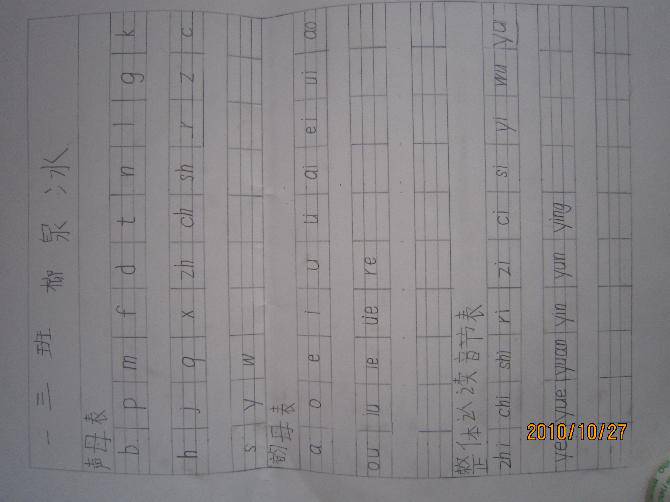 一 三 班 柳 泉 冰
声母表
b p m f d t n l g k
h j q x zh ch sh r z c
s y w
韵母表
a o e i u ü ai ei ui ao
ou iu ie üe re
整体认读音节表
zhi chi shi ri zi ci si yi wu yu
ye yue yuan yin yun ying
2010/10/27